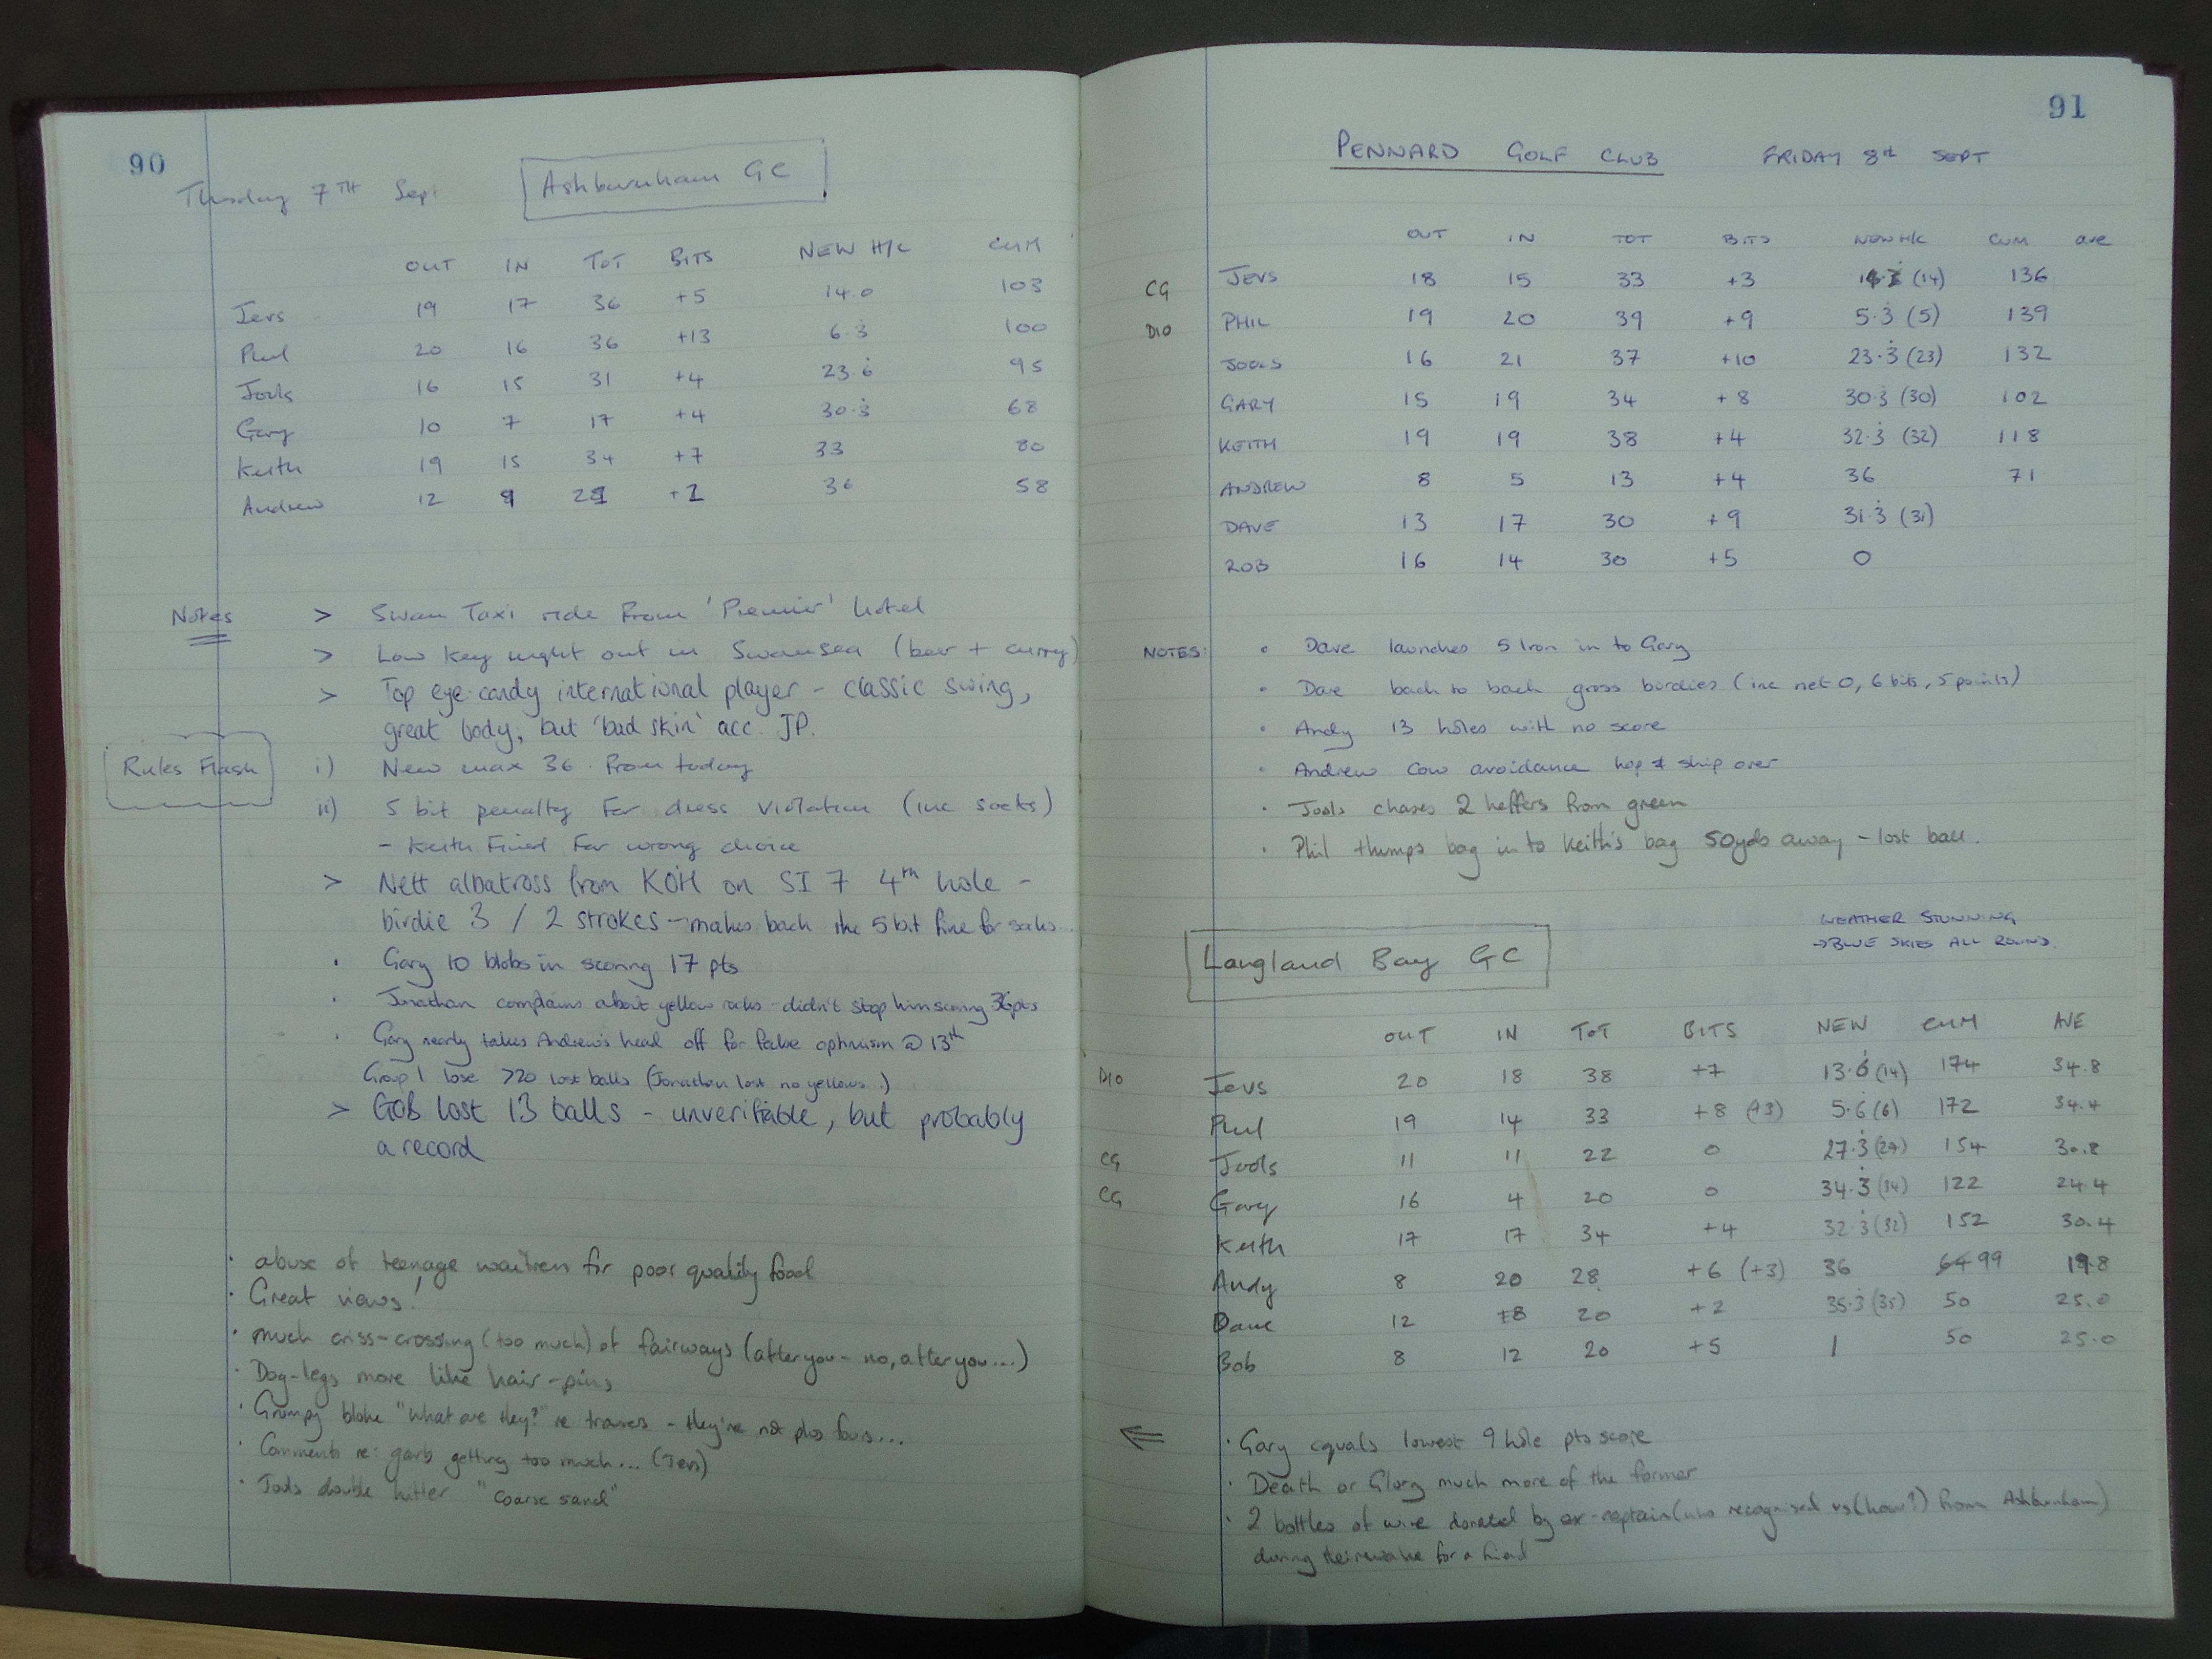 90
Thursday 7TH Sept
Ashburnham GC
OUT IN TOT BITS NEW H/C CUM
Jevs 19 17 36 +5 14.0 103
Phil 20 16 36 +13 6.3 100
Jools 16 15 31 +4 23.6 95
Gary 10 7 17 +4 30.3 68
Keith 19 15 34 +7 33 80
Andrew 12 9 21 +2 36 58
Notes > Swan Taxi ride from 'Premier' hotel
> Low key night out in Swansea (beer + curry)
> Top eye-candy international player - classic swing,
great body, but 'bad skin' acc. JP.
Rules Flash i) New max 36. From today
ii) 5 bit penalty for dress violation (inc socks)
- Keith Fined for wrong choice
> Nett albatross from KOH on SI 7 4th hole -
birdie 3 / 2 strokes - makes back the 5 bit fine for socks...
· Gary 10 blobs in scoring 17 pts
· Jonathan complains about yellow rocks - didn't stop him scoring 36pts
· Gary nearly takes Andrew's head off for false optimism @ 13th
Group 1 lose >20 lost balls (Jonathan lost no yellows..)
> GOB lost 13 balls - unverifiable, but probably
a record
· abuse of teenage waitress for poor quality food
· Great views!
· much criss-crossing (too much) of fairways (after you - no, after you...)
· Dog-legs more like hair-pins
· Grumpy bloke "What are they?" re trousers - they're not plus fours...
· Comments re: garb getting too much... (Jevs)
· Jools double hitter "coarse sand"
91
PENNARD GOLF CLUB FRIDAY 8th SEPT
OUT IN TOT BITS NEW H/C CUM ave
CG JEVS 18 15 33 +3 (14) 136
D10 PHIL 19 20 39 +9 5.3 (5) 139
JOOLS 16 21 37 +10 23.3 (23) 132
GARY 15 19 34 +8 30.3 (30) 102
KEITH 19 19 38 +4 32.3 (32) 118
ANDREW 8 5 13 +4 36 71
DAVE 13 17 30 +9 31.3 (31)
ROB 16 14 30 +5 0
NOTES: · Dave launches 5 Iron in to Gary
· Dave back to back gross birdies (inc net 0, 6 bits, 5 points)
· Andy 13 holes with no score
· Andrew cow avoidance hop & skip over
· Jools chases 2 heffers from green
· Phil thumps bag in to Keith's bag 50yds away - lost ball.
WEATHER STUNNING
→ BLUE SKIES ALL ROUND.
Langland Bay GC
OUT IN TOT BITS NEW CUM AVE
D10 Jevs 20 18 38 +7 13.6 (14) 174 34.8
Phil 19 14 33 +8 (+3) 5.6 (6) 172 34.4
CG Jools 11 11 22 0 27.3 (27) 154 30.8
CG Gary 16 4 20 0 34.3 (34) 122 24.4
Keith 17 17 34 +4 32.3 (32) 152 30.4
Andy 8 20 28 +6 (+3) 36 64 99 19.8
Dave 12 8 20 +2 35.3 (35) 50 25.0
Bob 8 12 20 +5 1 50 25.0
⇐ · Gary equals lowest 9 hole pts score
· Death or Glory much more of the former
· 2 bottles of wine donated by ex-captain (who recognised us (how?) from Ashburnham)
during their wake for a friend